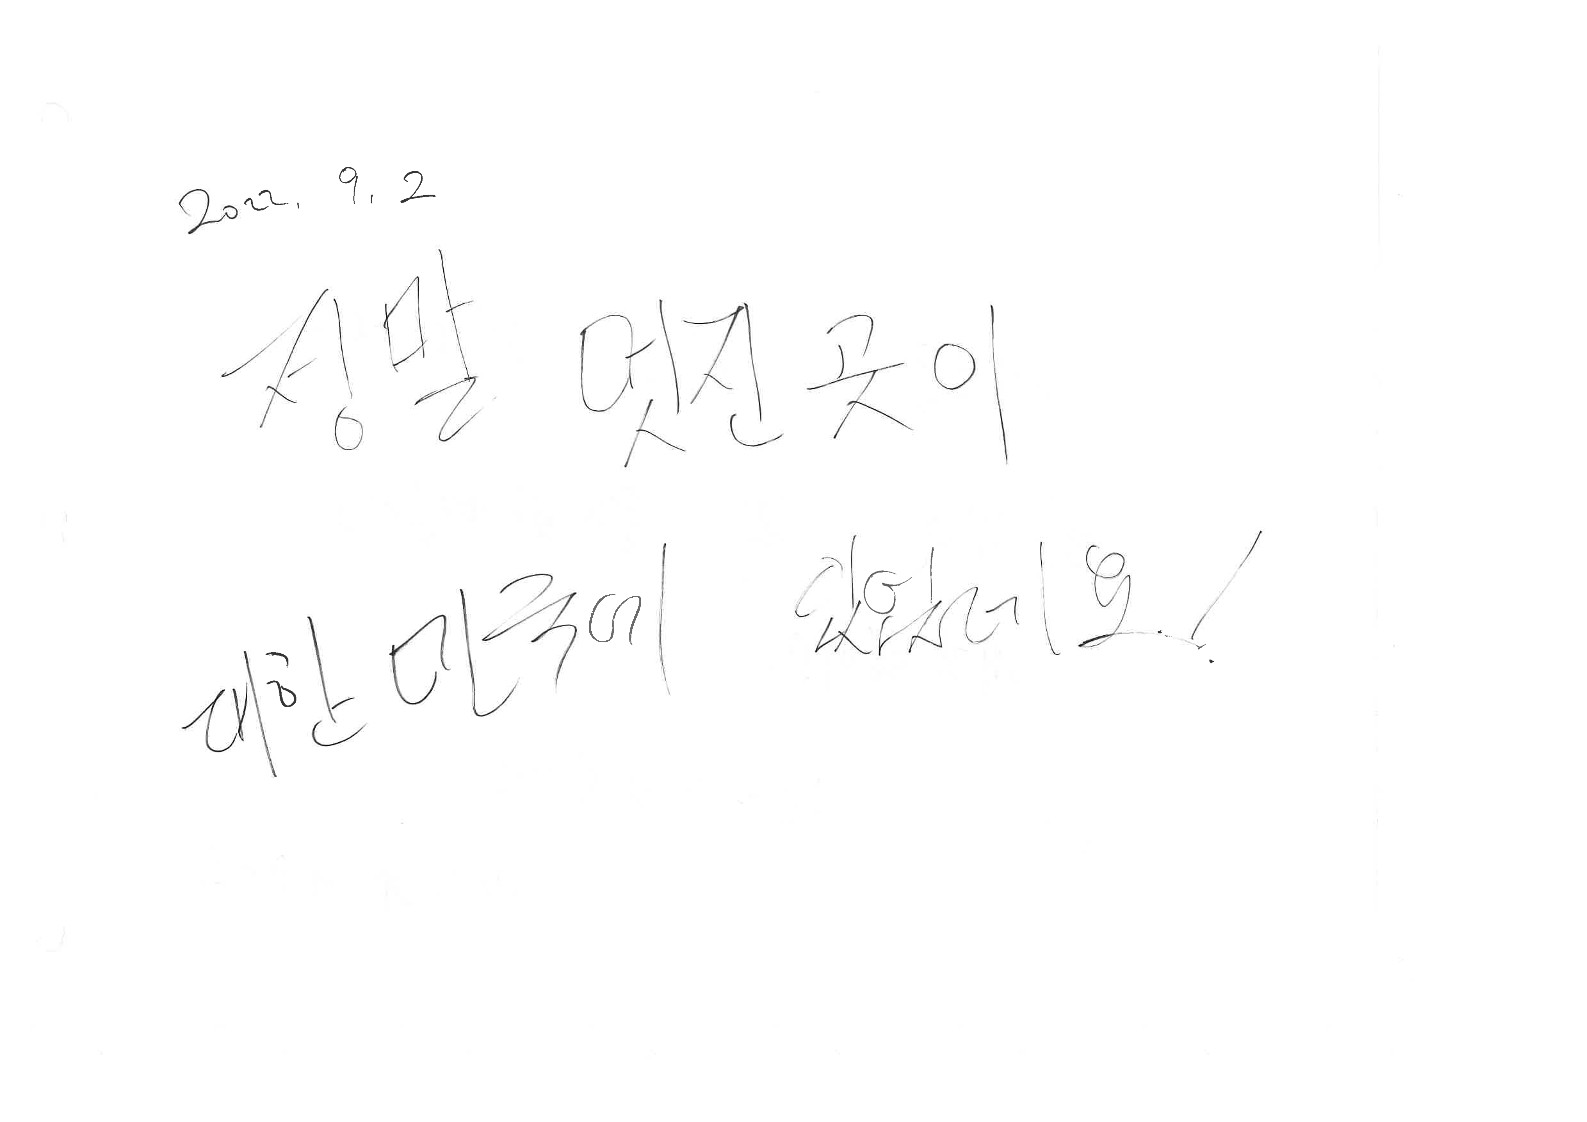 2022. 9. 2
정말 멋진 곳이
대한민국에 있었네요!